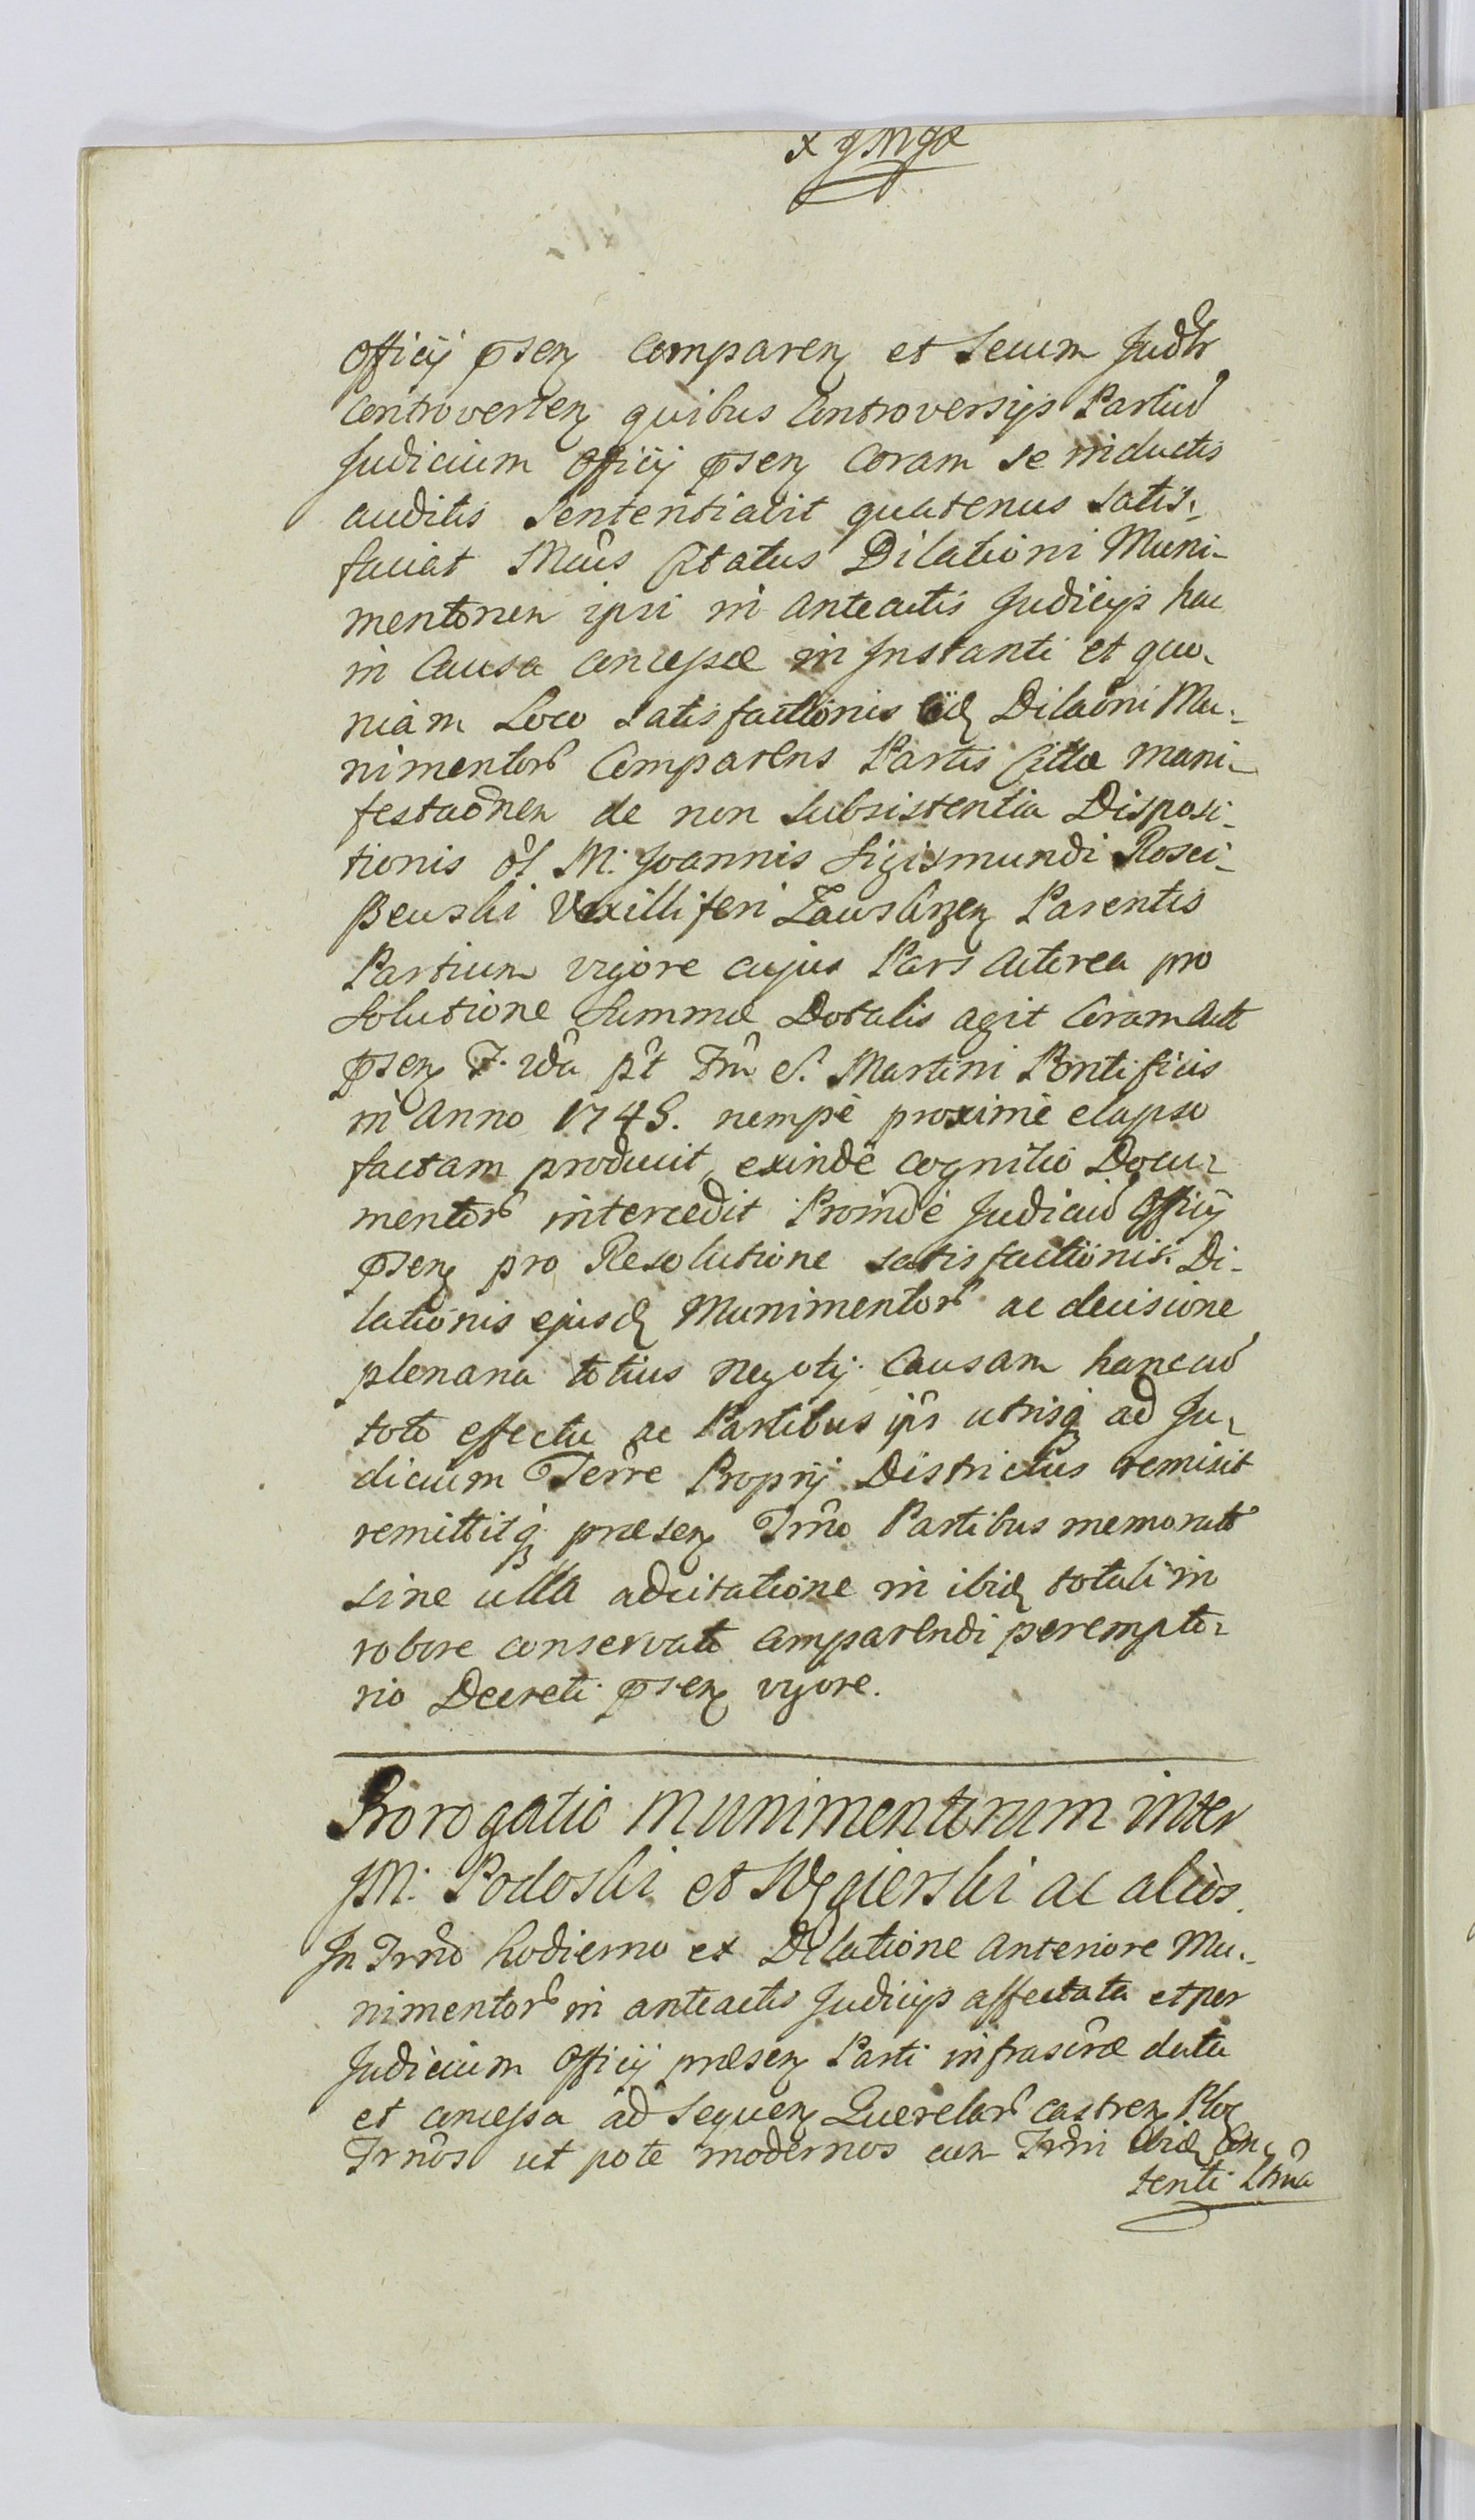 Officij pseñ Compareñ et Secum Judltr
Controverteñ quibus Controversijs Partiũ
Judicium Officij pseñ Coram se inductis
auditis Sententiavit quatenus satis-
faciat Mcus Citatus Dilationi Muni-
mentoruꝫ ipsi in anteactis Judicijs hac
in Causa concessæ in Instanti et quo-
niam Loco satisfactionis Dilaõni Mu-
nimentorũ Comparens Partis Cittæ mani-
festaõnem de non subsistentia Disposi-
tionis ol M: Joannis Sigismundi Rosci-
szewski Vexilliferi Zawskrzeñ Parentis
Partium vigore cujus Pars Actorea pro
Solutione Summæ Dotalis agit Coram Act
pseñ F. pt S. Martini Pontificis
in Anno 1748. nempè proximè elapso
factam producit, exindè cognitio Docu-
mentorũ intercedit Proindè Judiciũ Officij
pseñ pro Resolutione satisfactionis Di-
lationis ejusd Munimentorũ ac decisione
plenaria totius negotij Causam hancce cũ
toto effectu ac Partibus ipis utrisq ad Ju-
dicium Terre Proprij Districtus remisit
remittitq præseñ Trno Partibus memoratis
sine ulla adcitatione in ibid totali in
robore conservato comparendi perempto-
rio Decreti pseñ vigore.
Prorogatio Munimentorum inter
M: Podoski et Węgierski ac alios.
In Trno hodierno ex Dilatione anteriore Mu-
nimentorũ in anteactis Judicijs affectata et per
Judicium Officij præseñ Parti infrascræ data
et concessa ad Sequeñ Querelarũ castreñ Ploc
Trnos ut pote modernos cum Trni ibid Con-
senti